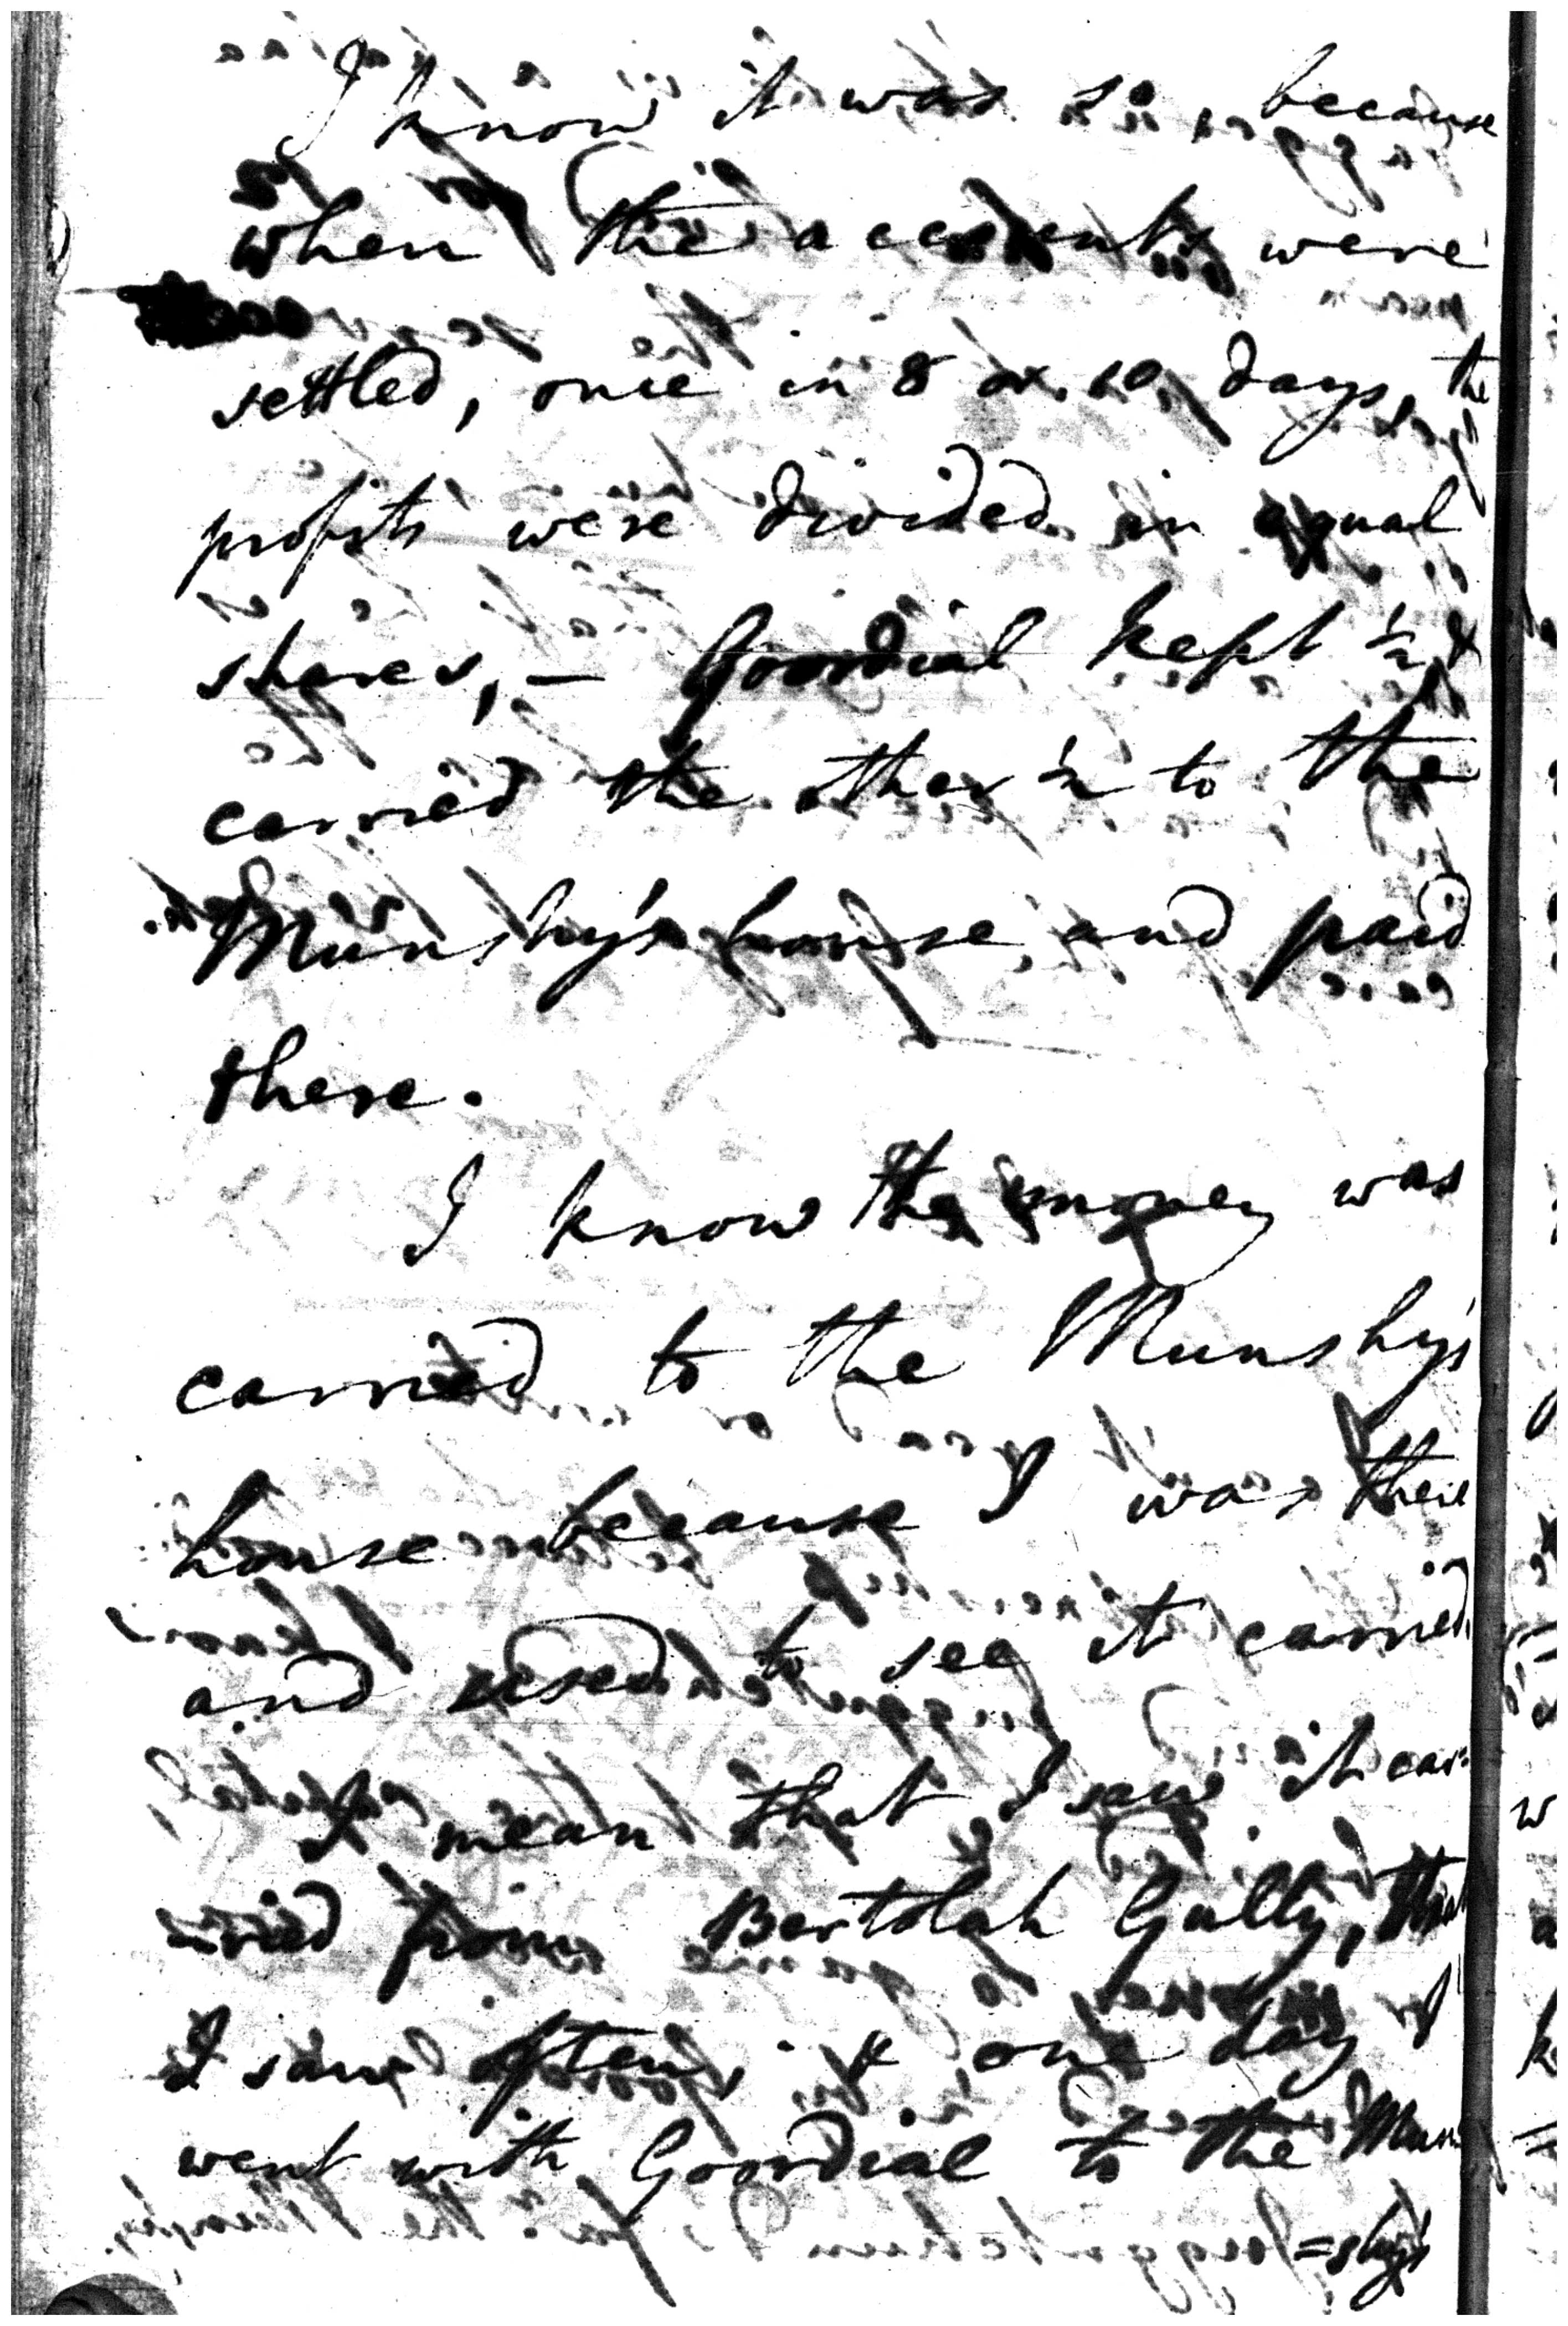 I know it was so, because
when the accounts were
settled, once in 8 or 10 days, the
profits were divided in equal
shares, — Goordial kept ½ &
carried the other ½ to the
Munshy's house, and paid
there.
I know the money was
carried to the Munshy's
house because I was there
and used to see it carried,
I mean that I saw it car=
=ried from Bertolah Gully, that
I saw often, & one day I
went with Goordial to the Mun
=shy's